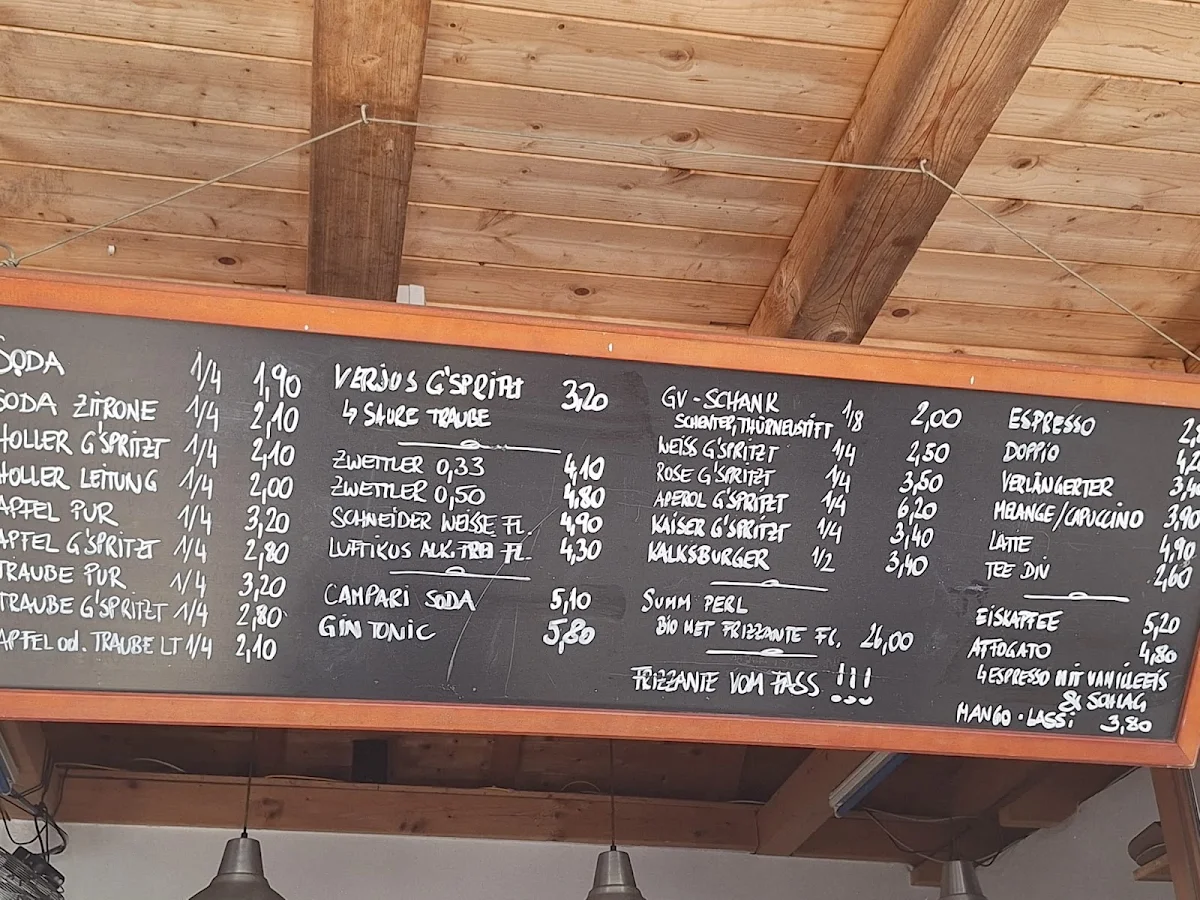 SODA 1/4 1,90
SODA ZITRONE 1/4 2,10
HOLLER G'SPRITZT 1/4 2,10
HOLLER LEITUNG 1/4 2,00
APFEL PUR 1/4 3,20
APFEL G'SPRITZT 1/4 2,80
TRAUBE PUR 1/4 3,20
TRAUBE G'SPRITZT 1/4 2,80
APFEL od. TRAUBE LT 1/4 2,10
VERJUS G'SPRITZT 3,20
↳ SAURE TRAUBE
ZWETTLER 0,33 4,10
ZWETTLER 0,50 4,80
SCHNEIDER WEISSE FL. 4,90
LUFTIKUS ALK. FREI FL. 4,30
CAMPARI SODA 5,10
GIN TONIC 5,80
GV-SCHANK 1/8 2,00
WEISS G'SPRITZT 1/4 2,50
ROSE G'SPRITZT 1/4 3,50
APEROL G'SPRITZT 1/4 6,20
KAISER G'SPRITZT 1/4 3,40
KALKSBURGER 1/2 3,40
SUMM PERL
BIO MET FRIZZANTE FL. 26,00
FRIZZANTE VOM FASS !!!
ESPRESSO
DOPPIO
VERLÄNGERTER
MELANGE/CAPUCCINO 3,90
LATTE 4,90
TEE DIV 2,60
EISKAFFEE 5,20
AFFOGATO 4,80
↳ ESPRESSO MIT VANILLEEIS
& SCHLAG
MANGO-LASSI 3,80